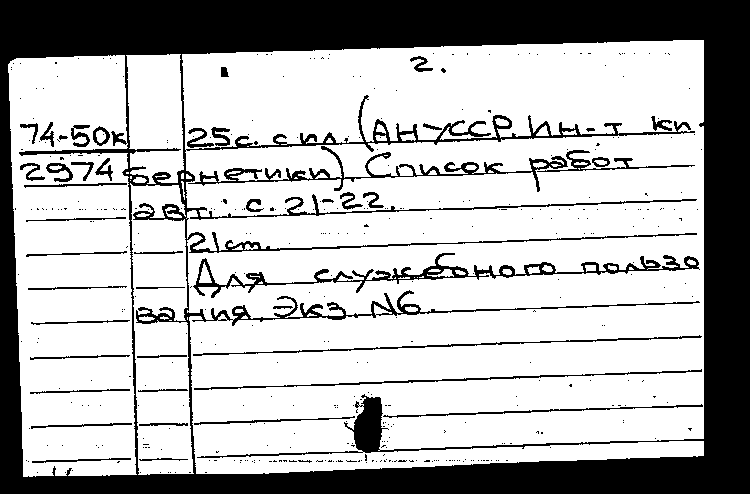 2.
74-50к 25с. с ил. (АН УССР. Ин-т ки-
2974 бернетики). Список работ
авт.: с. 21-22.
21 см.
Для служебного пользо
вания. Экз. N6.